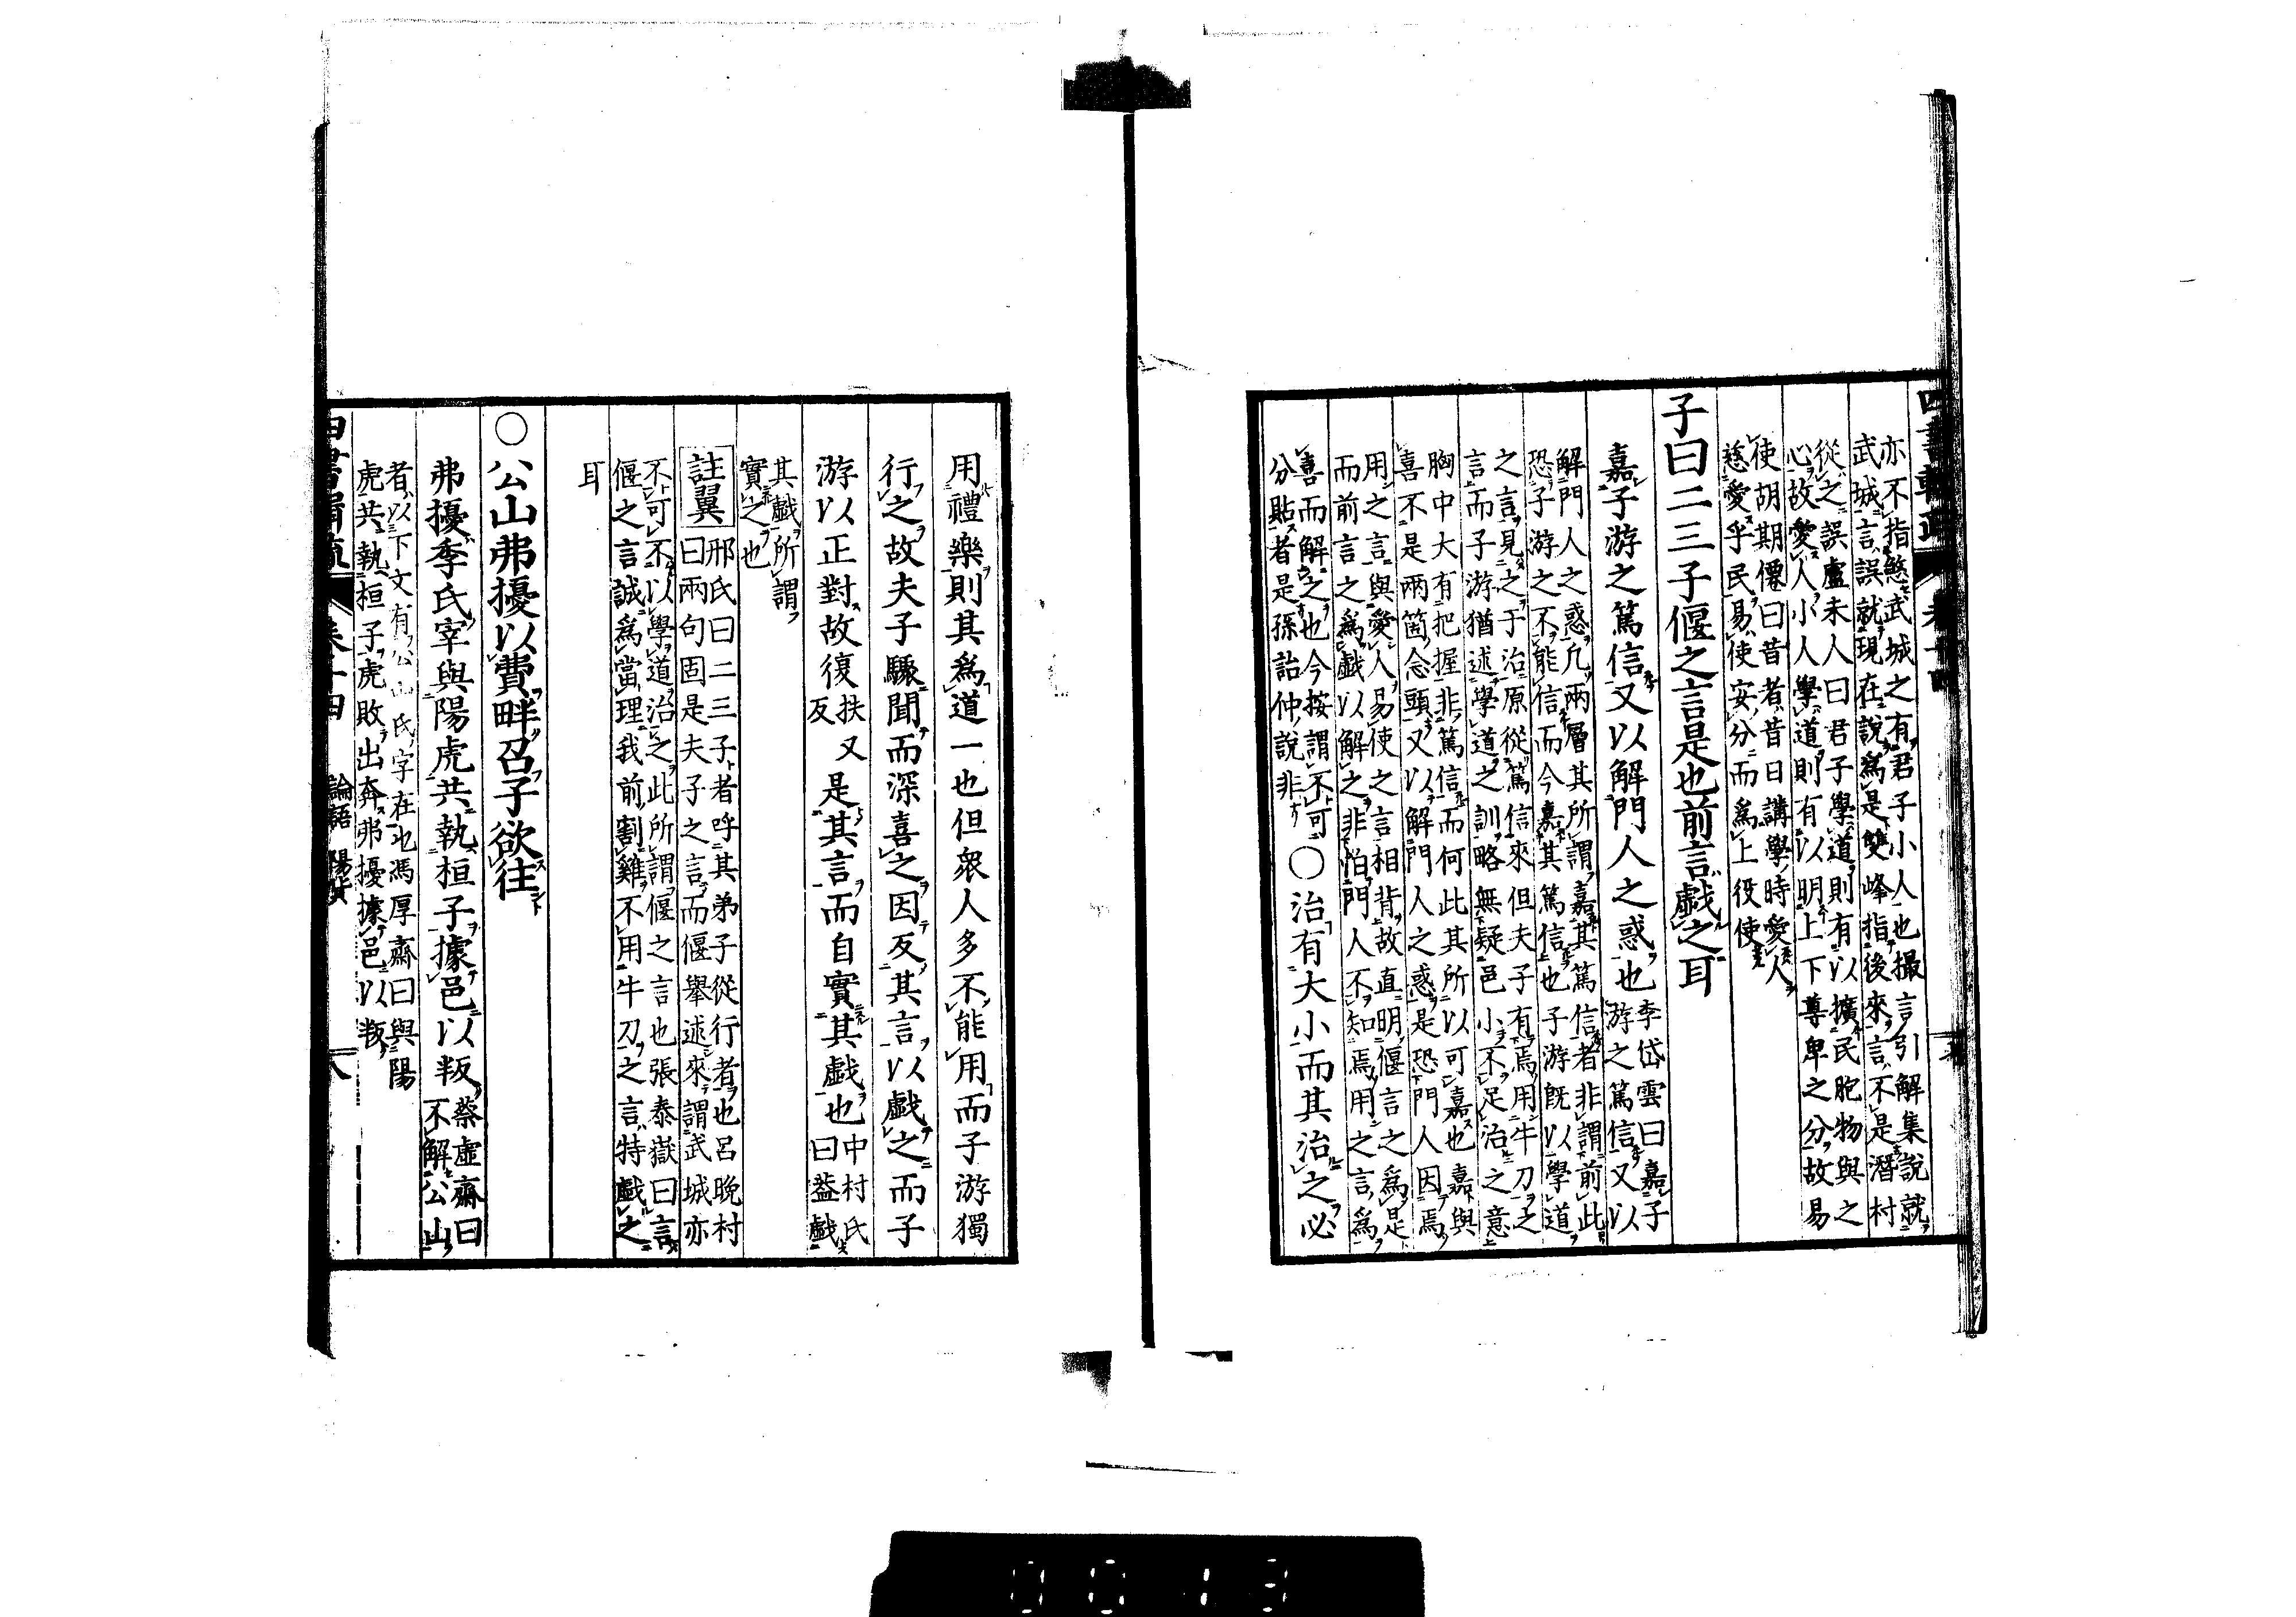 亦不指煞武城之有君子小人也撮言引解集說就
武城言誤就現在說爲是雙峰指後來言不是潛村
從之誤盧未人曰君子學道則有以擴民胞物與之
心故愛人小人學道則有以明上下尊卑之分故易
使胡期僊曰昔者昔日講學時愛人
慈愛乎民易使安分而爲上役使
子曰二三子偃之言是也前言戲之耳
嘉子游之篤信又以解門人之惑也
李岱雲曰嘉子
游之篤信又以
解門人之惑凢兩層其所謂嘉其篤信者非謂前此
恐子游之不能信而今嘉其篤信也子游旣以學道
之言見之于治原從篤信來但夫子有焉用牛刀之
言而子游猶述學道之訓略無疑邑小不足治之意
胸中大有把握非篤信而何此其所以可嘉也嘉與
喜不是兩箇念頭又以解門人之惑是恐門人因焉
用之言與愛人易使之言相背故直明偃言之爲是
而前言之爲戲以解之非怕門人不知焉用之言爲
喜而解之也今按謂不可
分貼者是孫詒仲說非
○治有大小而其治之必
用禮樂則其爲道一也但衆人多不能用而子游獨
行之故夫子驟聞而深喜之因反其言以戲之而子
游以正對故復
扶
反
又是其言而自實其戲也
中村氏
曰蓋戲
其戲所謂
實之也
註翼
邢氏曰二三子者呼其弟子從行者也呂晚村
曰兩句固是夫子之言而偃舉述來謂武城亦
不可不以學道治之此所謂偃之言也張泰嶽曰言
偃之言誠爲當理我前割雞不用牛刀之言特戲之
耳
○公山弗擾以費畔召子欲往
弗擾季氏宰與陽虎共執桓子據邑以叛
蔡虛齋曰
不解公山
者以下文有公山氏字在也馮厚齋曰與陽
虎共執桓子虎敗出奔弗擾據邑以叛
卷十四
論語 陽貨
八